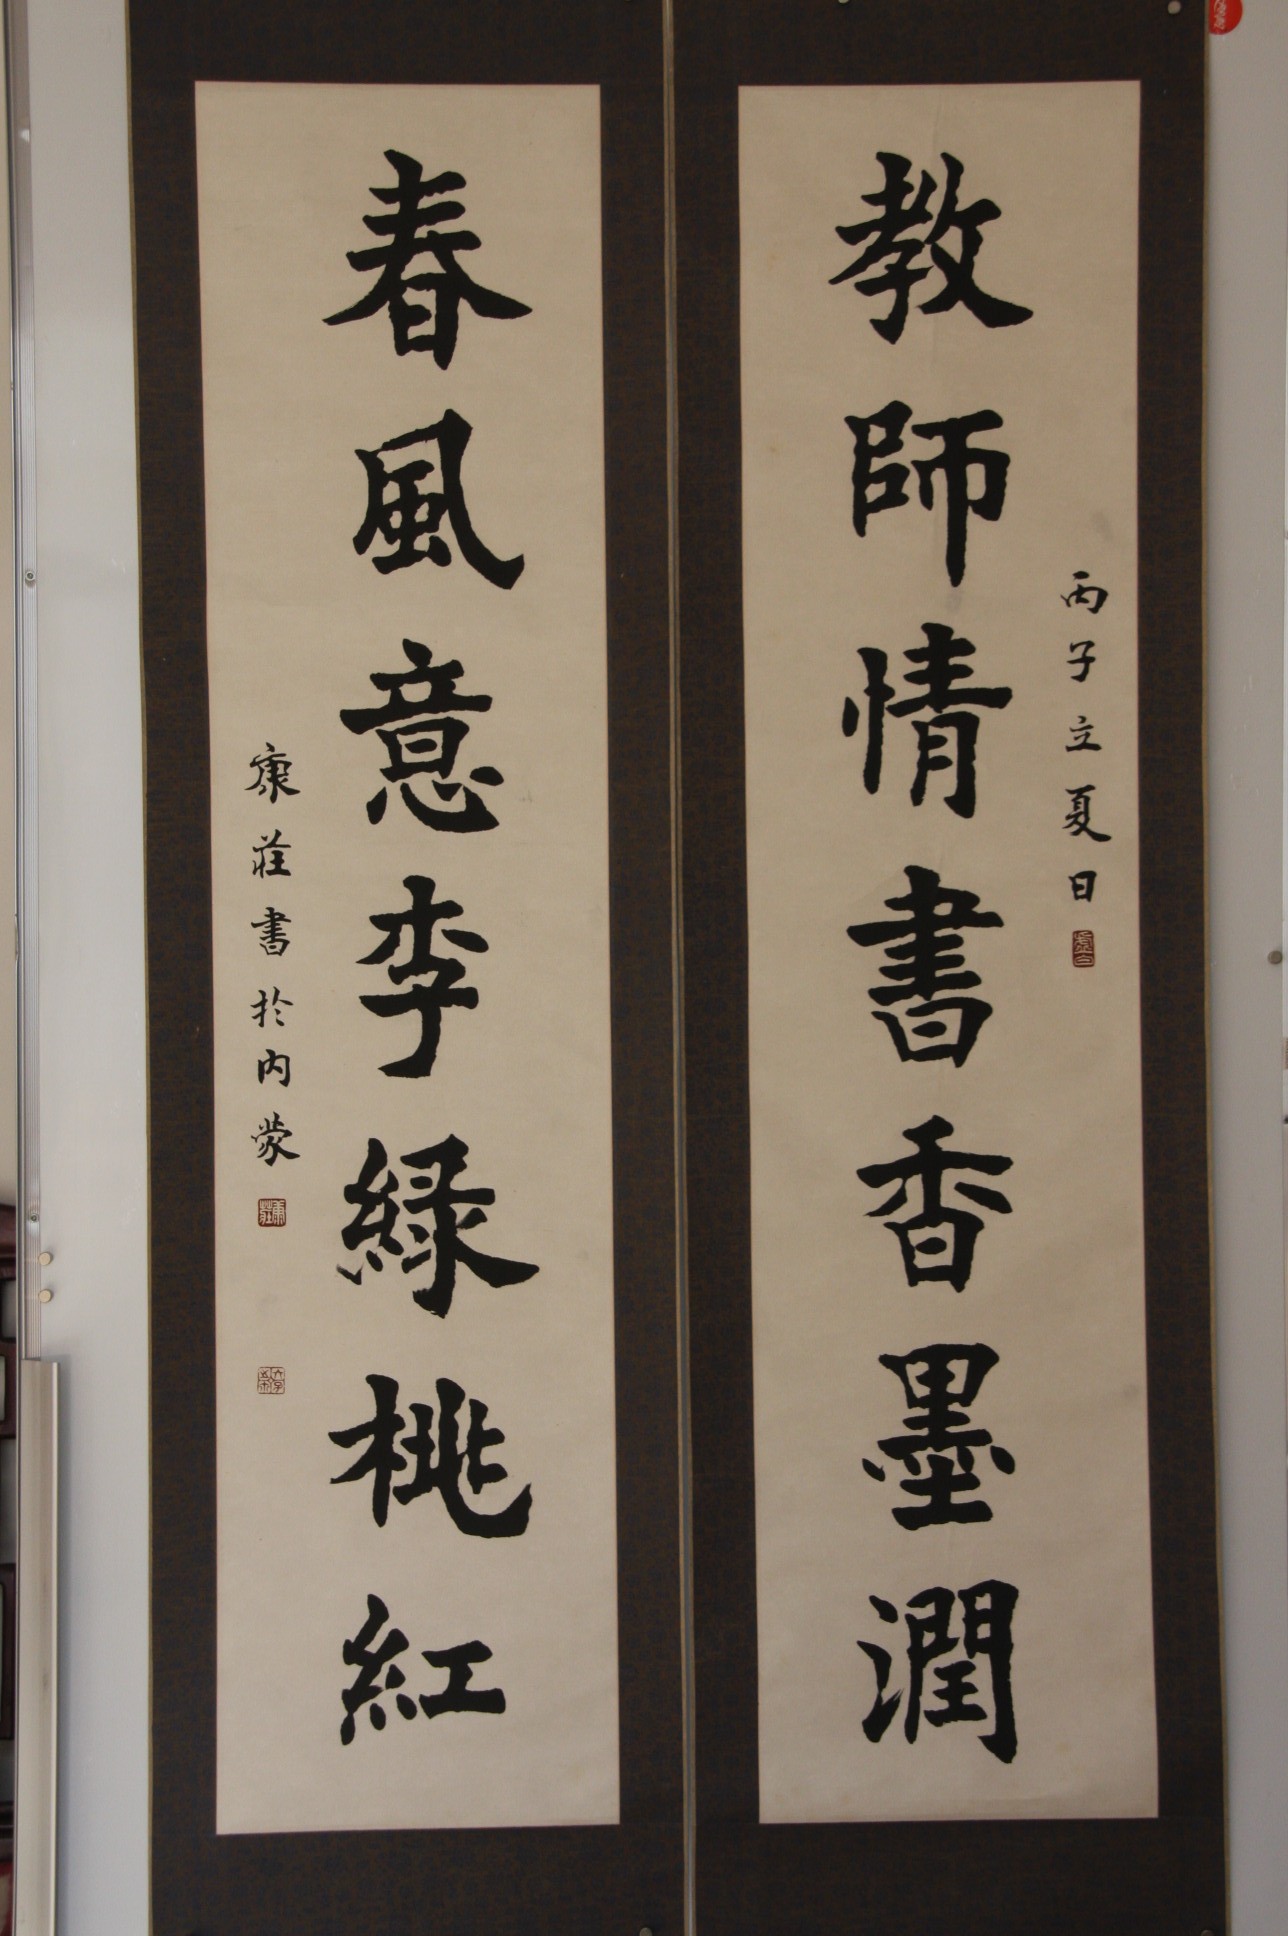 教師情書香墨潤
丙子立夏日
春風意李緑桃紅
康莊書於内蒙
康莊